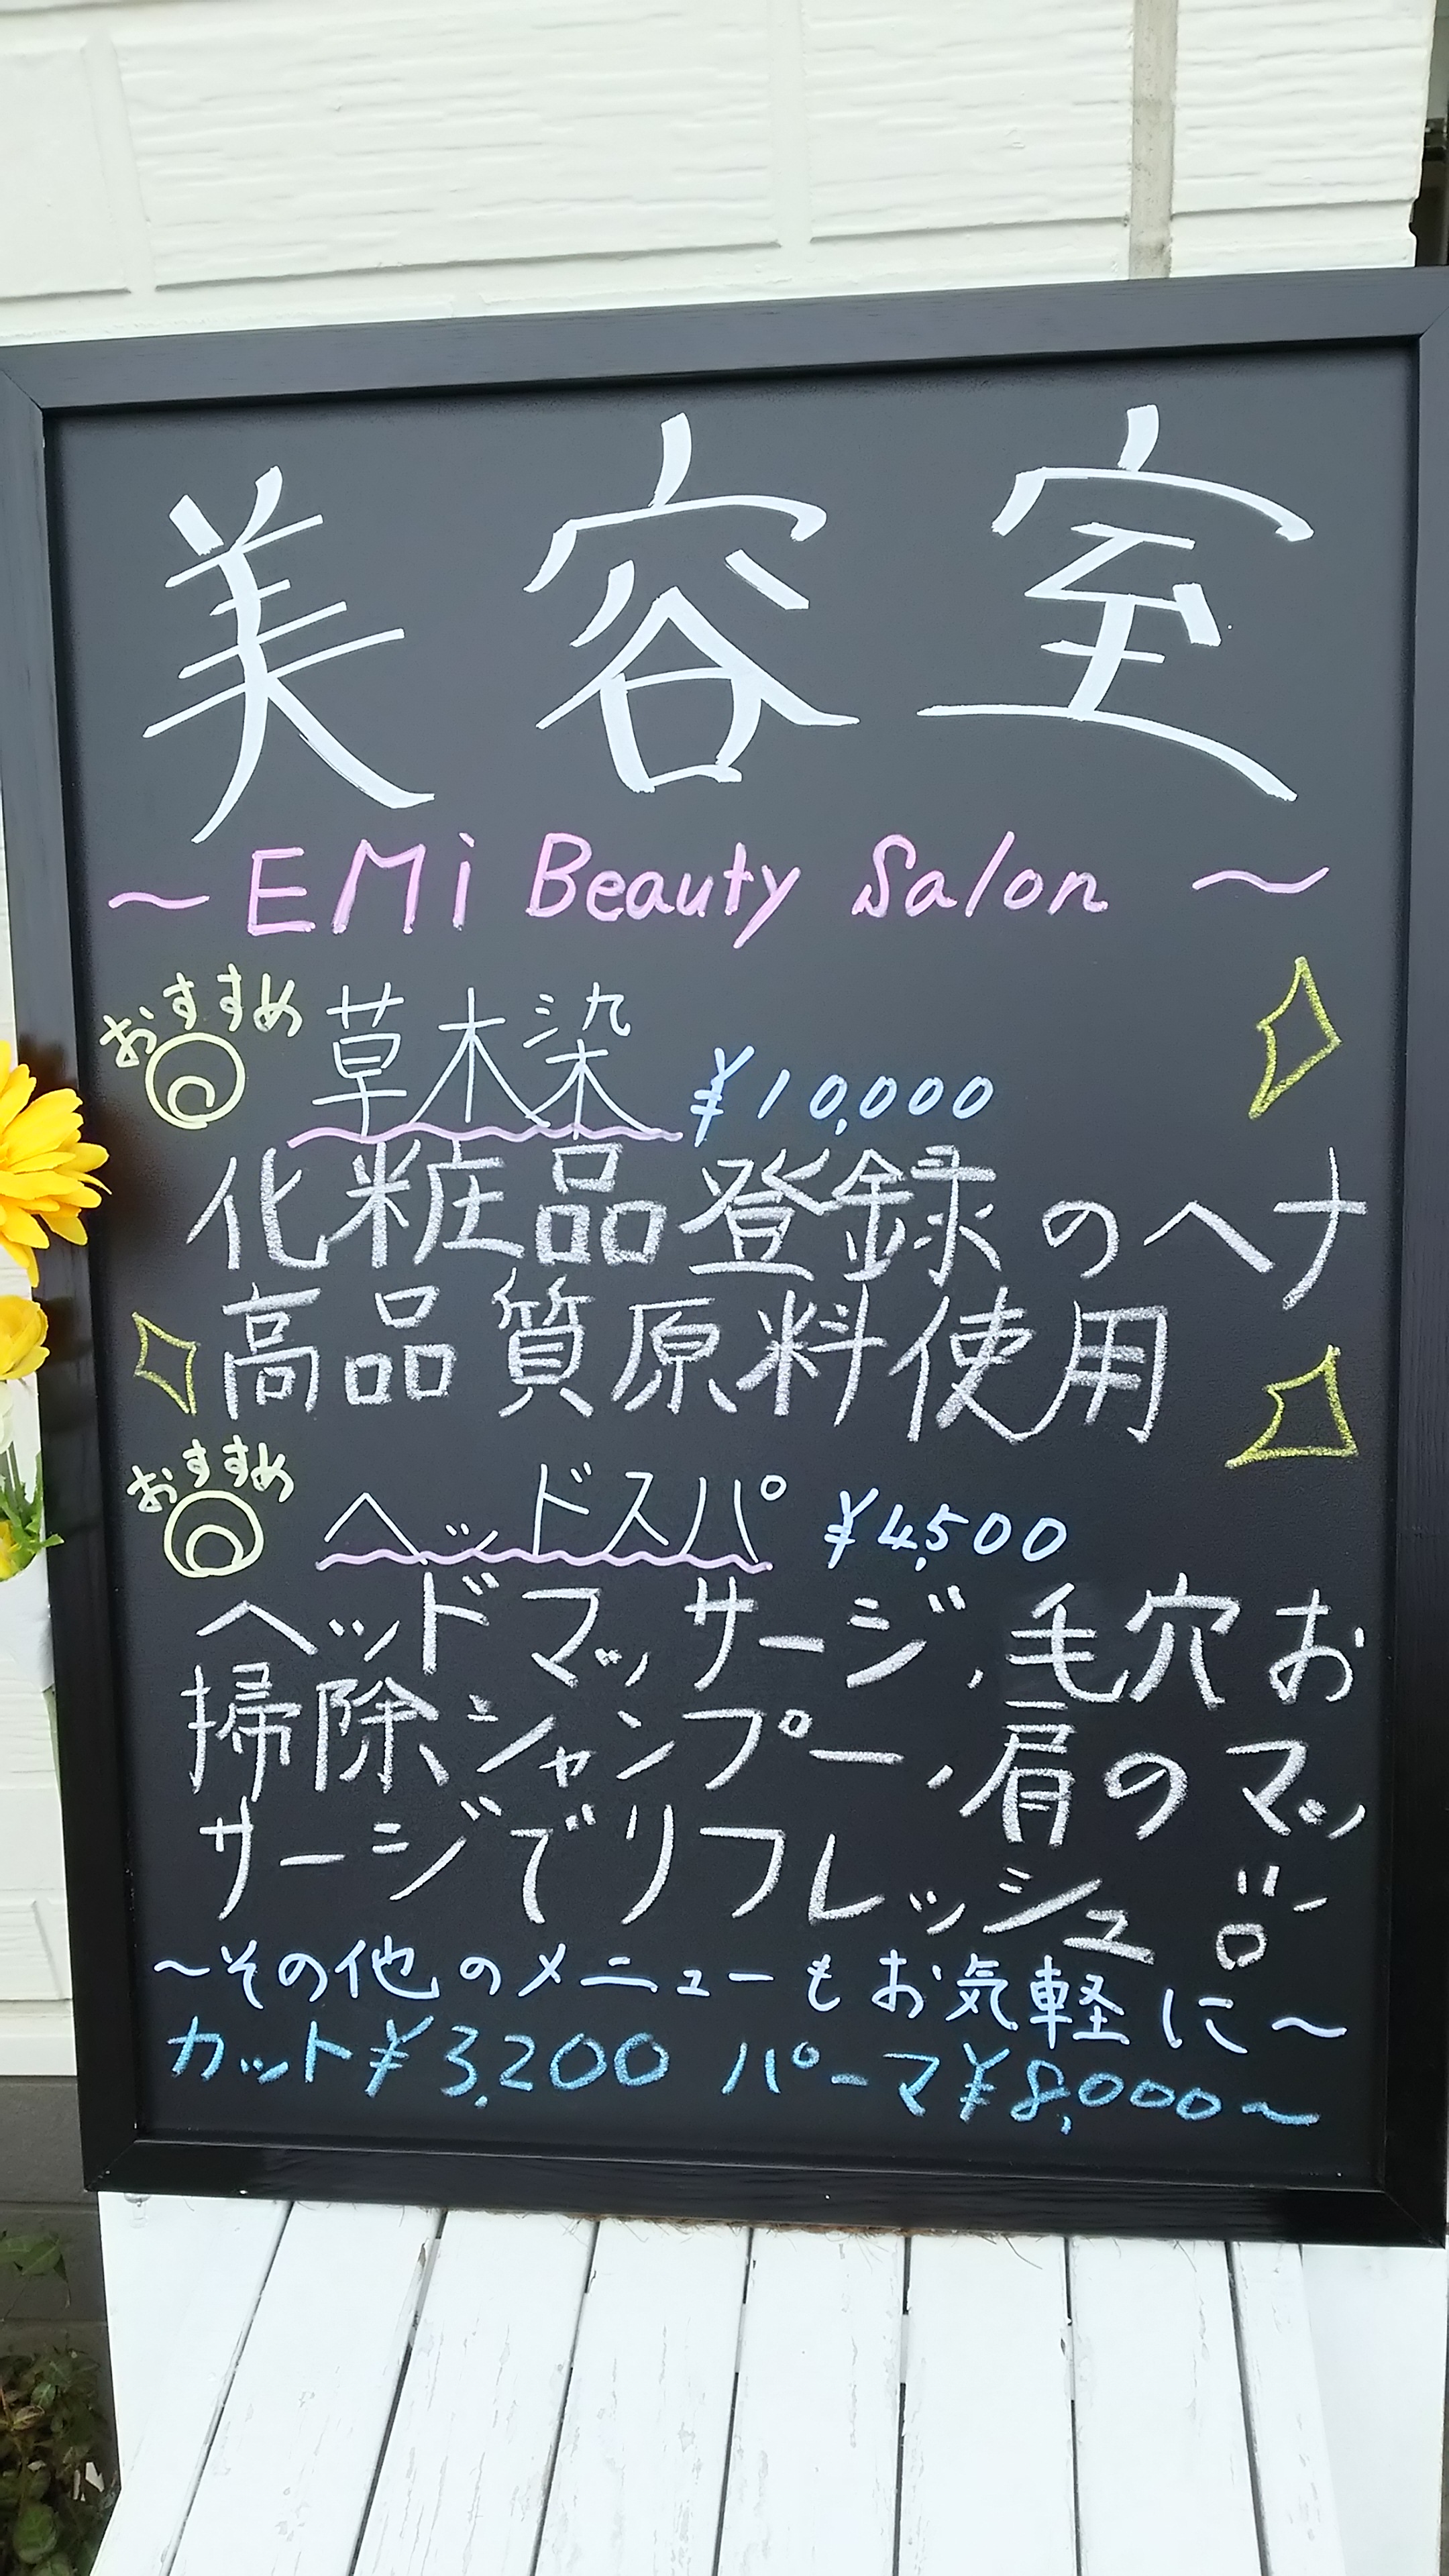 美容室
～EMi Beauty Salon～
おすすめ
草木染 ¥10,000
化粧品登録のヘナ
高品質原料使用
おすすめ
ヘッドスパ ¥4,500
ヘッドマッサージ,毛穴お
掃除シャンプー,肩のマッ
サージでリフレッシュ
～その他のメニューもお気軽に～
カット¥3,200 パーマ¥8,000～